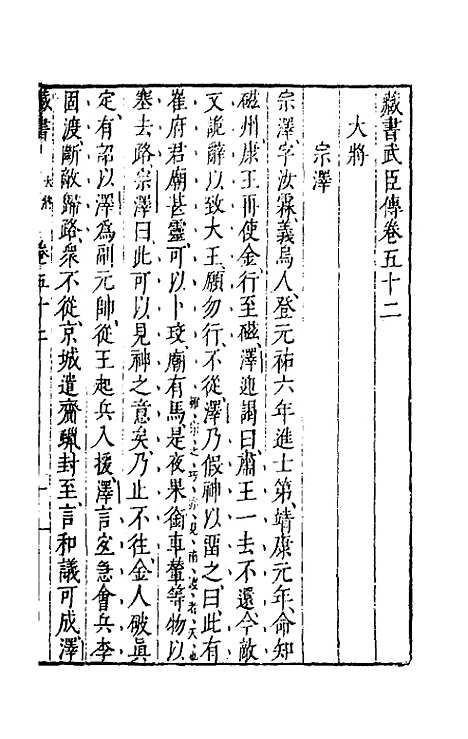 藏書武臣傳卷五十二
大將
宗澤
宗澤、字汝霖、義烏人、登元祐六年進士第、靖康元年、命知
磁州、康王再使金、行至磁、澤迎謁曰、肅王一去不還、今敵
又詭辭以致大王、願勿行、不從、澤乃假神以留之曰、此有
崔府君廟甚靈、可以卜珓、廟有馬、是夜果銜車輦等物以
塞去路、宗澤曰、此可以見神之意矣、乃止不往、金人破眞
定、有詔以澤為副元帥、從王起兵入援、澤言宜急會兵李
固渡、斷敵歸路、衆不從、京城遣齎蠟封至、言和議可成、澤
藏書 大將 卷五十二 一